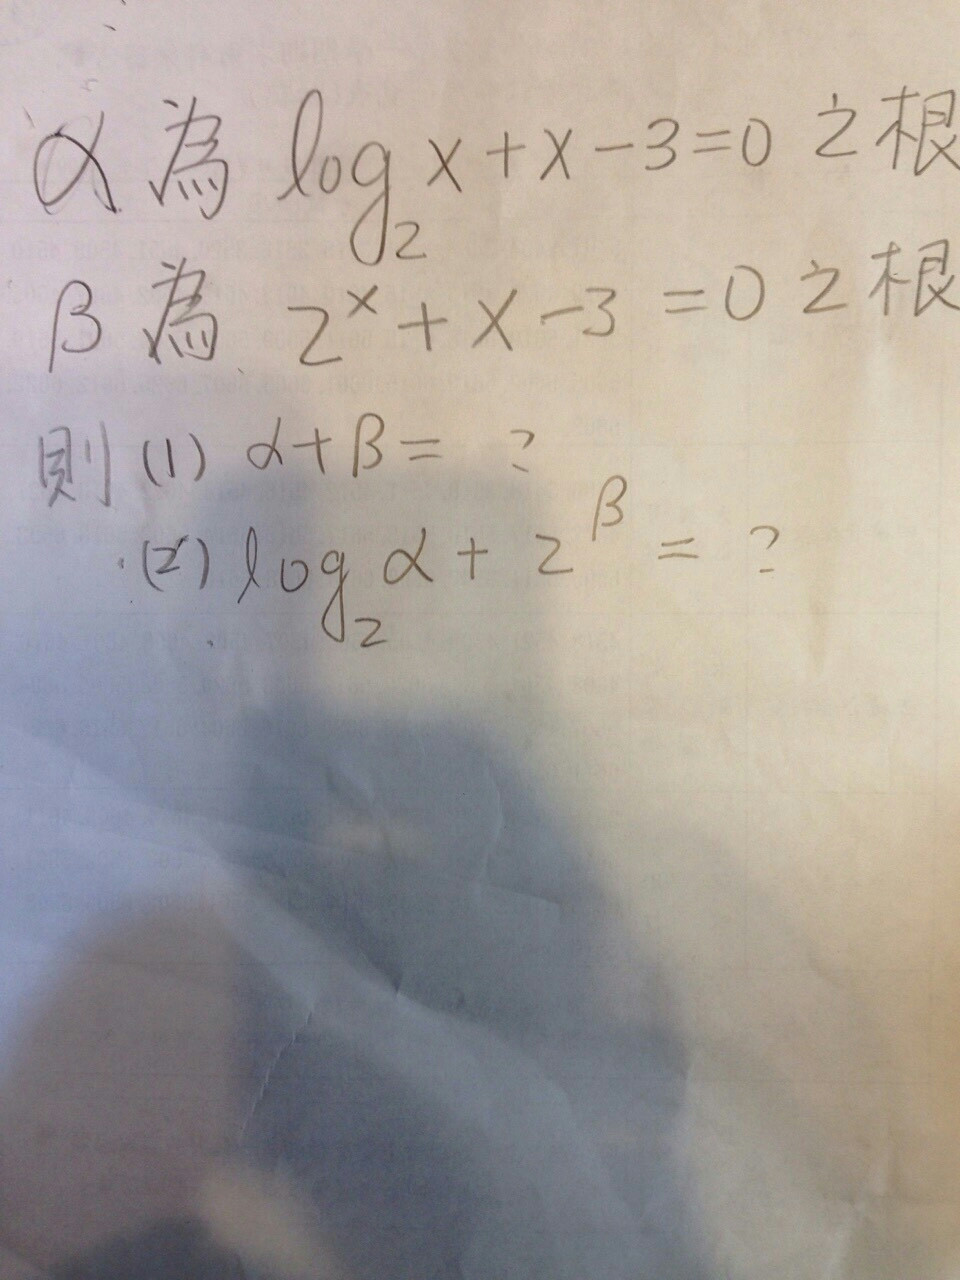 α 為 log₂x+x-3=0 之根
β 為 2ˣ+x-3=0 之根
則 (1) α+β= ?
(2) log₂α+2^β = ?